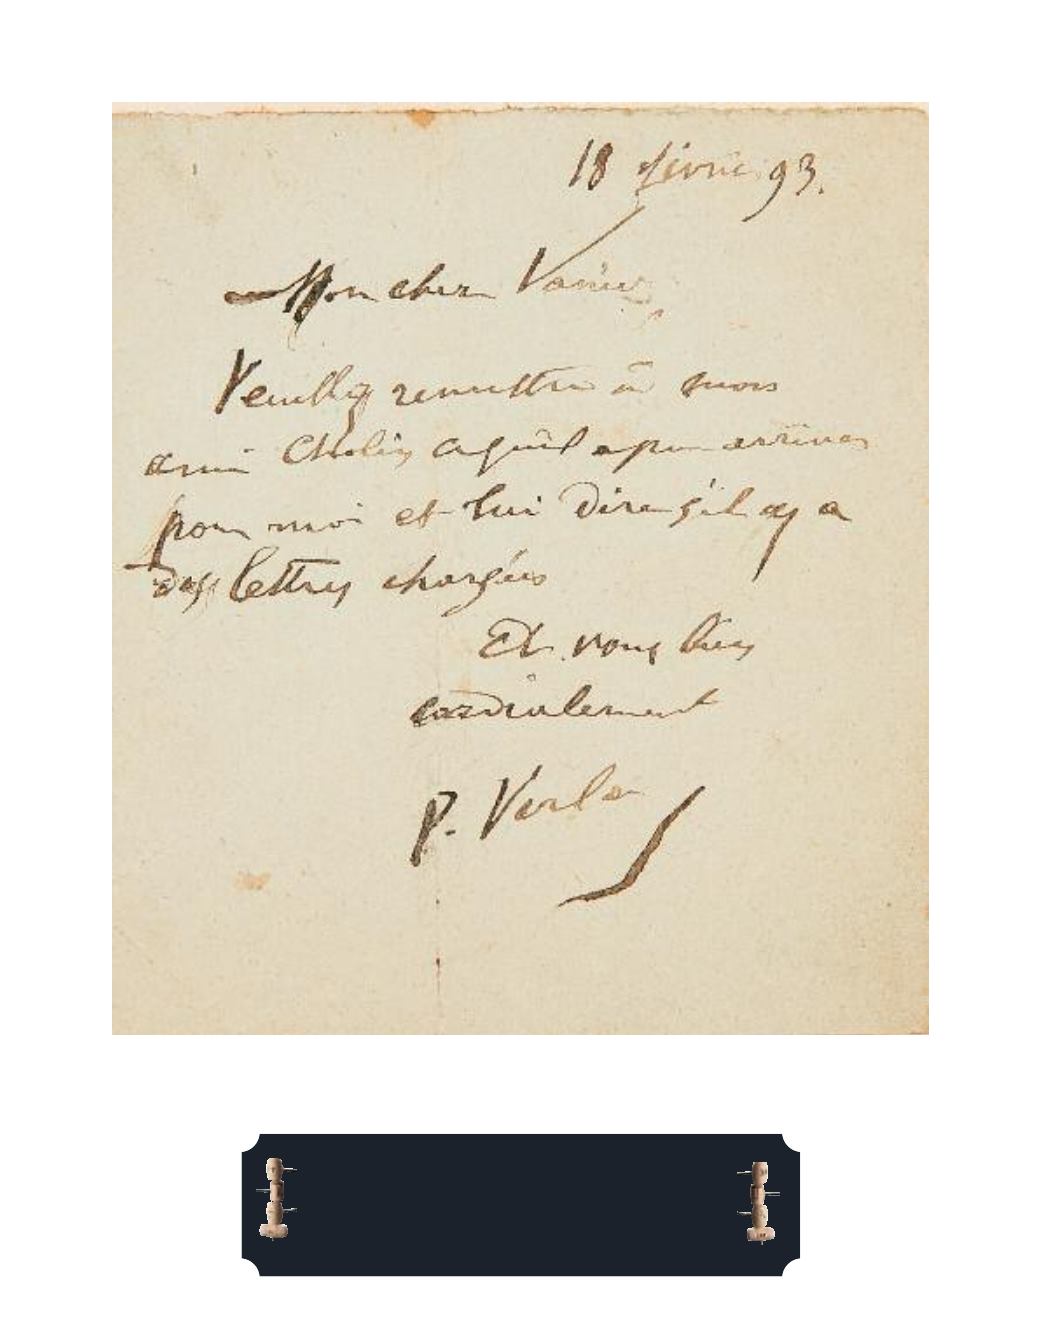 18 févrie 93.
Mon cher Vanier
Veuillez remettre à mon
ami Cholin ce qu'il a pu arriver
pour moi et lui dire s'il y a
des lettres chargées
Et vous bien
cordialement
P. Verla